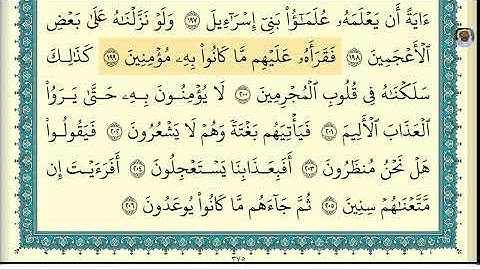 ءَايَةً أَن يَعْلَمَهُۥ عُلَمَـٰٓؤُا۟ بَنِىٓ إِسْرَٰٓءِيلَ ١٩٧ وَلَوْ نَزَّلْنَـٰهُ عَلَىٰ بَعْضِ
ٱلْأَعْجَمِينَ ١٩٨ فَقَرَأَهُۥ عَلَيْهِم مَّا كَانُوا۟ بِهِۦ مُؤْمِنِينَ ١٩٩ كَذَٰلِكَ
سَلَكْنَـٰهُ فِى قُلُوبِ ٱلْمُجْرِمِينَ ٢٠٠ لَا يُؤْمِنُونَ بِهِۦ حَتَّىٰ يَرَوُا۟
ٱلْعَذَابَ ٱلْأَلِيمَ ٢٠١ فَيَأْتِيَهُم بَغْتَةً وَهُمْ لَا يَشْعُرُونَ ٢٠٢ فَيَقُولُوا۟
هَلْ نَحْنُ مُنظَرُونَ ٢٠٣ أَفَبِعَذَابِنَا يَسْتَعْجِلُونَ ٢٠٤ أَفَرَءَيْتَ إِن
مَّتَّعْنَـٰهُمْ سِنِينَ ٢٠٥ ثُمَّ جَآءَهُم مَّا كَانُوا۟ يُوعَدُونَ ٢٠٦
٣٧٥